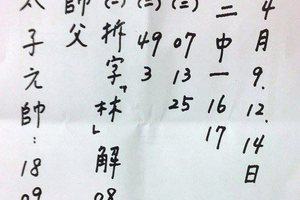 4月9.12.14日
二中一 16 17
(三) 07 13 25
(二) 49 3
(一) 拆字「林」解 08
師父
太子元帥:18 09